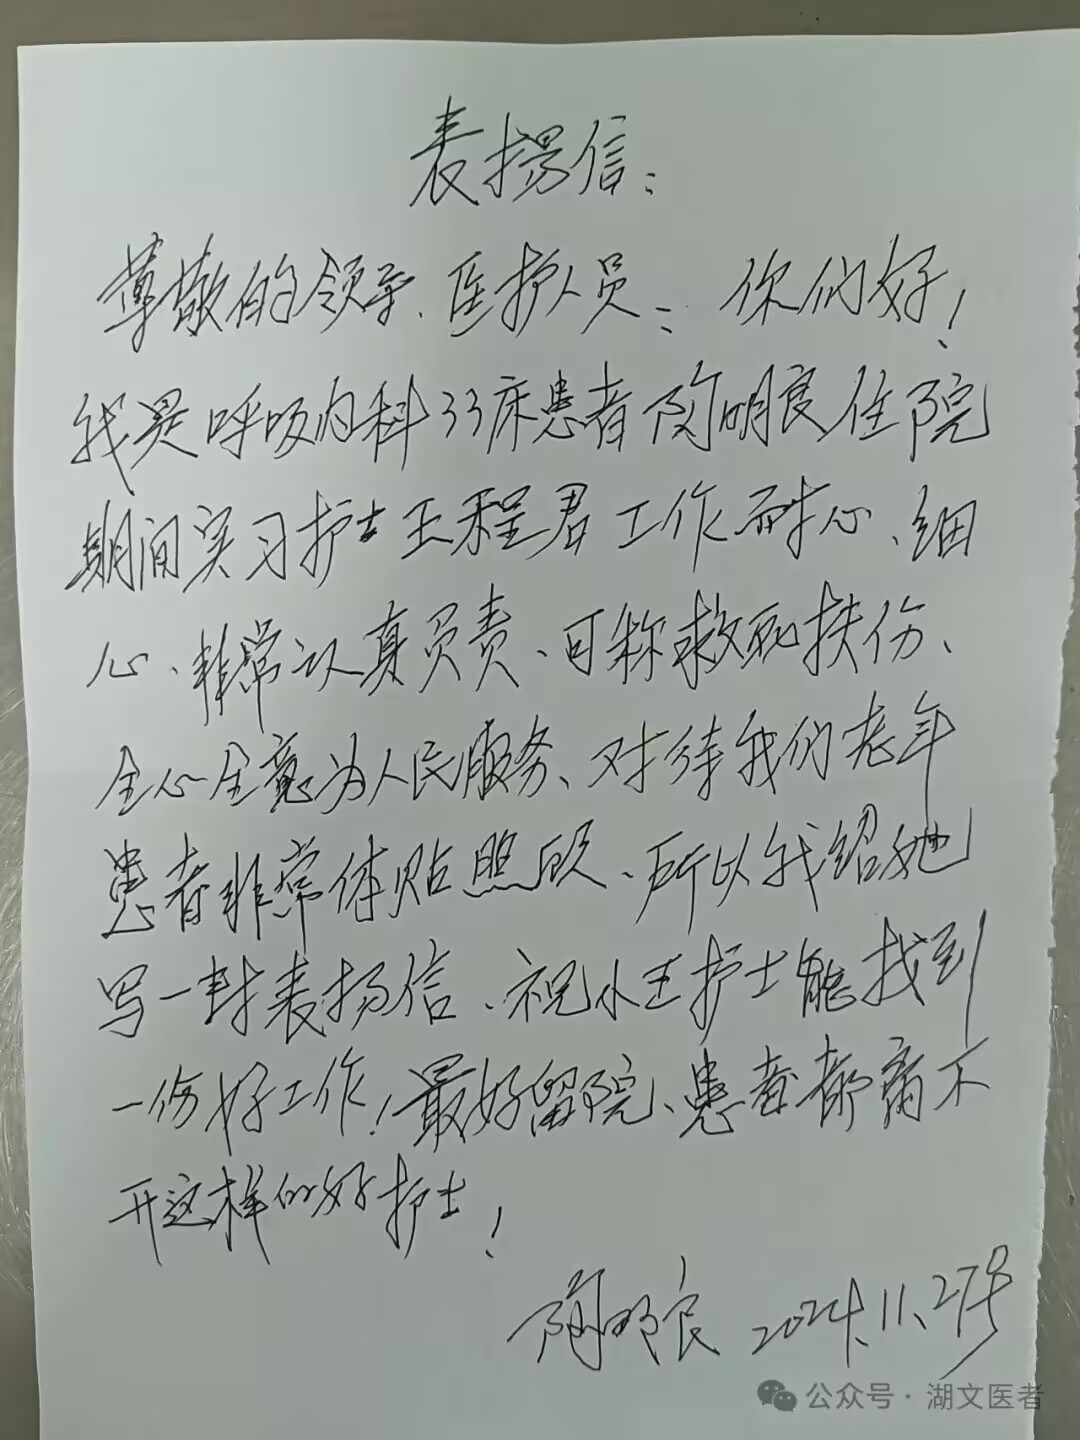 表扬信：
尊敬的领导、医护人员：你们好！
我是呼吸内科33床患者陶明良住院
期间实习护士王程君工作耐心、细
心、非常认真负责、可称救死扶伤、
全心全意为人民服务、对待我们老年
患者非常体贴照顾、所以我给她
写一封表扬信、祝小王护士能找到
一份好工作！最好留院、患者都离不
开这样的好护士！
陶明良 2024.11.27号
公众号·湖文医者